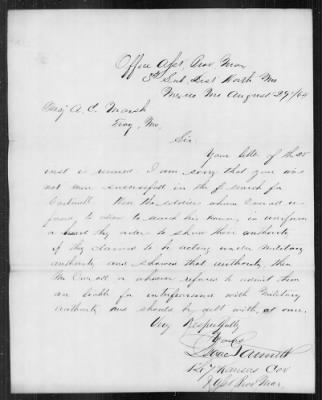 Office Asst Prov Mar
3rd Sub Dist North Mo
Mexico Mo August 29/64
Maj A. C. Marsh
Troy, Mo.
Sir
Your letter of the
inst is received I am sorry that you was
not more successful in the search for
Were the soldiers whom Carroll re
fused to allow to search his house, in uniform
they order to show their authority
if they claimed to be acting under Military
authority and showed that authority then
Mr Carroll or whoever refuses to admit them
are liable for interference with Military
authority and should be dealt with at once.
Very Respectfully
Yours
Kansas Cav
Asst Prov Mar